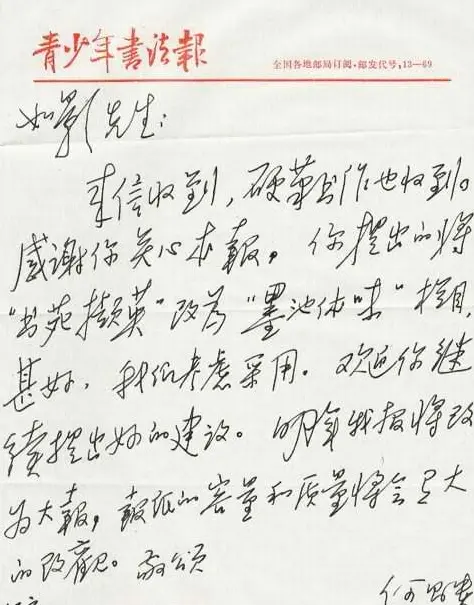 青少年书法報
全国各地邮局订阅·邮发代号:13—69
如影先生:
来信收到,硬笔书作也收到。
感谢你关心本報。你提出的将
“书苑撷英”改为“墨池体味”栏目,
甚好,我们考虑采用。欢迎你继
续提出好的建设。明年我报将改
为大報,報纸的容量和质量将会更大
的改觀。敬颂